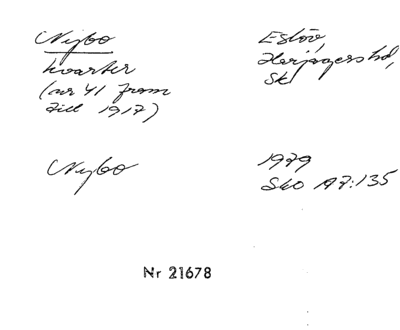 Nybo
kvarter
(nr 41 fram
till 1917)
Eslöv,
Harjagers hd,
Sk
Nybo
1979
Sko A7:135
Nr 21678